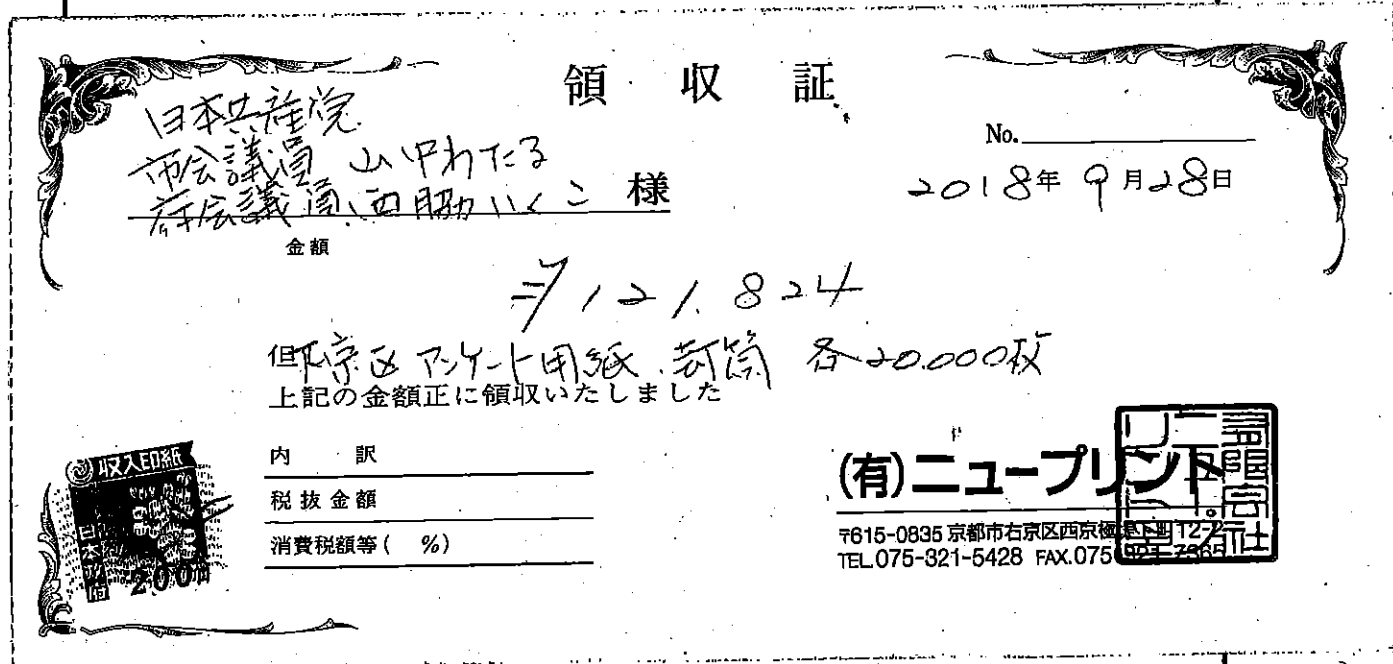 領収証
日本共産党
市会議員 山中わたる
府会議員 西脇いくこ 様
No.
2018年9月28日
金額
¥121.824
但下京区アンケート用紙.封筒 各20.000枚
上記の金額正に領収いたしました
収入印紙
200円
内訳
税抜金額
消費税額等( %)
(有)ニュープリント
〒615-0835 京都市右京区西京極 12-2
TEL.075-321-5428 FAX.075